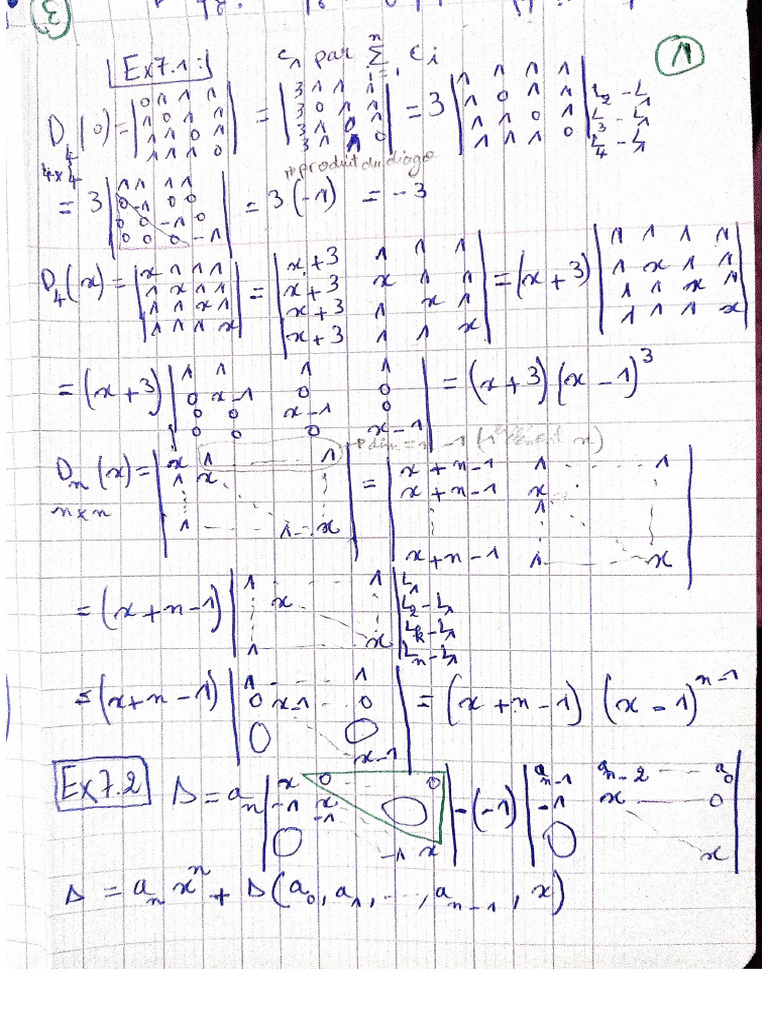 3
Ex 7.1: C₁ par \sum_{i=1}^{n} C_i 1
D₄(0) = |0 1 1 1; 1 0 1 1; 1 1 0 1; 1 1 1 0| = |3 1 1 1; 3 0 1 1; 3 1 0 1; 3 1 1 0| = 3 |1 1 1 1; 1 0 1 1; 1 1 0 1; 1 1 1 0| L₂-L₁ L₃-L₁ L₄-L₁
4x4
produit du diago
= 3 |1 1 1 1; 0 -1 0 0; 0 0 -1 0; 0 0 0 -1| = 3(-1) = -3
D₄(x) = |x 1 1 1; 1 x 1 1; 1 1 x 1; 1 1 1 x| = |x+3 1 1 1; x+3 x 1 1; x+3 1 x 1; x+3 1 1 x| = (x+3) |1 1 1 1; 1 x 1 1; 1 1 x 1; 1 1 1 x|
= (x+3) |1 1 1 1; 0 x-1 0 0; 0 0 x-1 0; 0 0 0 x-1| = (x+3)(x-1)³
dim = n-1 (1 x)
Dₙ(x) = |x 1 --- 1; 1 x; 1 --- 1 -- x| = |x+n-1 1 --- 1; x+n-1 x; 1; x+n-1 1 --- x|
n x n
= (x+n-1) |1 --- 1; x; 1 x| L₁ L₂-L₁ L_k-L₁ Lₙ-L₁
= (x+n-1) |1 --- 1; 0 x-1 -- 0; 0 0 x-1| = (x+n-1) (x-1)^{n-1}
Ex 7.2 Δ = aₙ |x 0 --- 0; -1 x; -1 0; 0 -1 x| -(-1) |a_{n-1} a_{n-2} --- a₀; -1 x --- 0; 0 x|
Δ = aₙ xⁿ + Δ(a₀, a₁, ..., a_{n-1}, x)